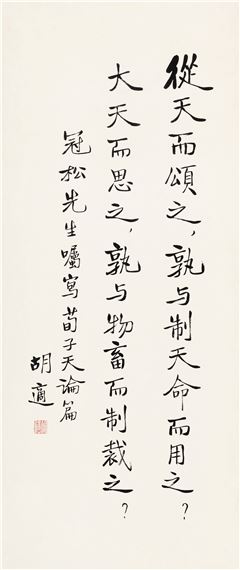 從天而頌之，孰与制天命而用之？
大天而思之，孰与物畜而制裁之？
冠松先生囑寫荀子天論篇
胡適